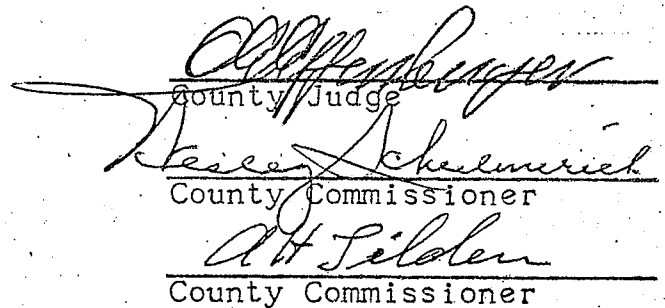 County Judge
Wesley
County Commissioner
A H Tilden
County Commissioner